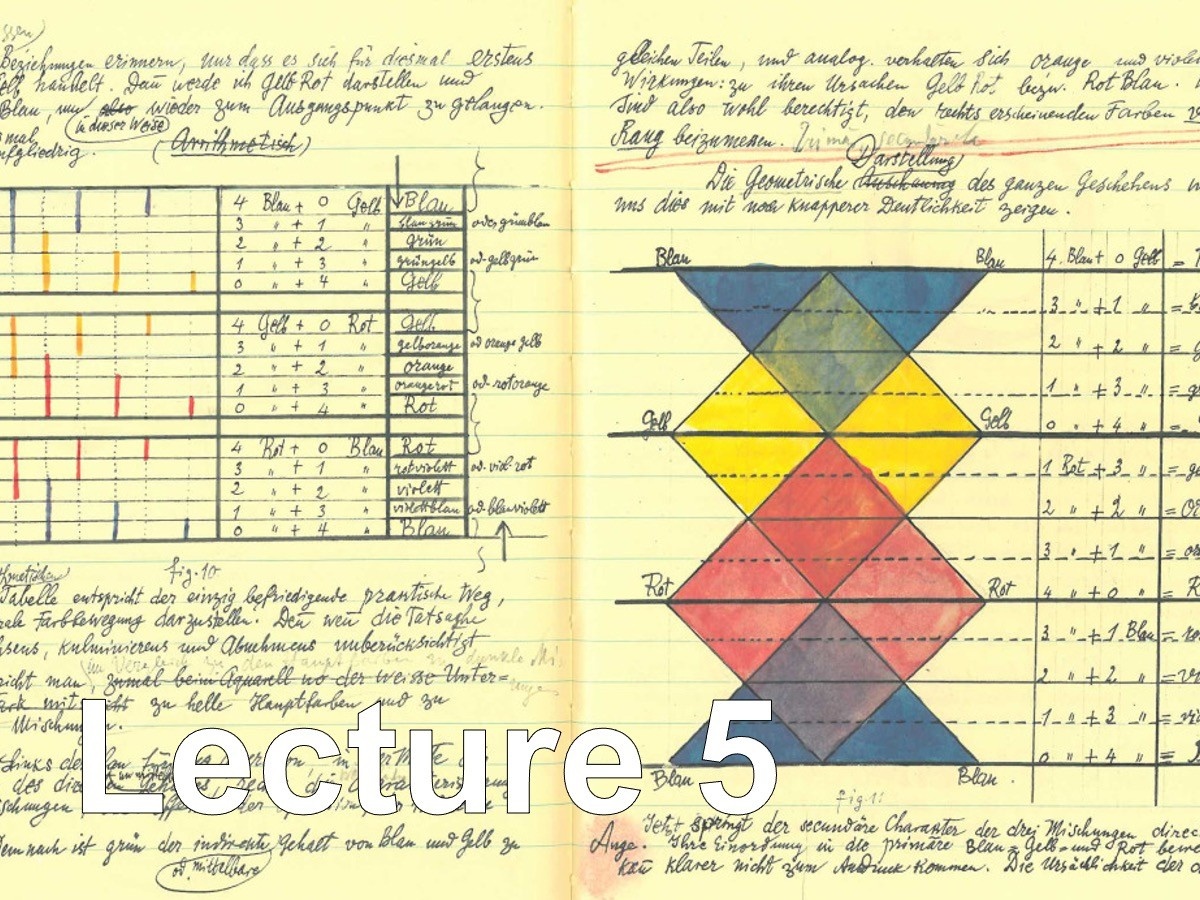 Beziehungen erinnern, nur dass es sich für diesmal erstens
handelt. Dann werde ich Gelb Rot darstellen und
Blau, um also wieder zum Ausgangspunkt zu gelangen.
in dieser Weise
(Arithmetisch)
4 Blau + 0 Gelb Blau
3 " + 1 " blaugrün od. grünblau
2 " + 2 " grün
1 " + 3 " grüngelb od. gelbgrün
0 " + 4 " Gelb
4 Gelb + 0 Rot Gelb
3 " + 1 " gelborange od orange gelb
2 " + 2 " orange
1 " + 3 " orangerot od. rotorange
0 " + 4 " Rot
4 Rot + 0 Blau Rot
3 " + 1 " rotviolett od. viol. rot
2 " + 2 " violett
1 " + 3 " violettblau od. blauviolett
0 " + 4 " Blau
fig. 10
Tabelle entspricht der einzig befriedigende praktische Weg,
Farbbewegung darzustellen. Denn wenn die Tatsache
kulminierens und Abnehmens unberücksichtigt
im Vergleich zu den Hauptfarben zu dunkle
man, zumal beim Aquarell wo der weisse Unter=
mit zu helle Hauptfarben und zu
Mischungen.
Links
des
Demnach ist grün der indirekte Gehalt von Blau und Gelb zu
od. mittelbare
gleichen Teilen, und analog verhalten sich orange und
Wirkungen: zu ihren Ursachen Gelb Rot bezw. Rot Blau.
Sind also wohl berechtigt, den rechts erscheinenden Farben
Rang beizumessen.
Darstellung
Die Geometrische Anschauung des ganzen Geschehens
uns dies mit noch knapperer Deutlichkeit zeigen.
Blau Blau 4 Blau + 0 Gelb =
3 " + 1 " =
2 " + 2 " =
1 " + 3 " =
Gelb Gelb 0 " + 4 " =
1 Rot + 3 " =
2 " + 2 " =
3 " + 1 " =
Rot Rot 4 " + 0 " =
3 " + 1 Blau =
2 " + 2 " =
1 " + 3 " =
Blau Blau 0 " + 4 " =
fig. 11
Jetzt springt der secundäre Character der drei Mischungen
Auge. Ihre Einordnung in die primäre Blau= Gelb= und Rot
kann klarer nicht zum Ausdruck kommen. Die Ursächlichkeit der
Lecture 5